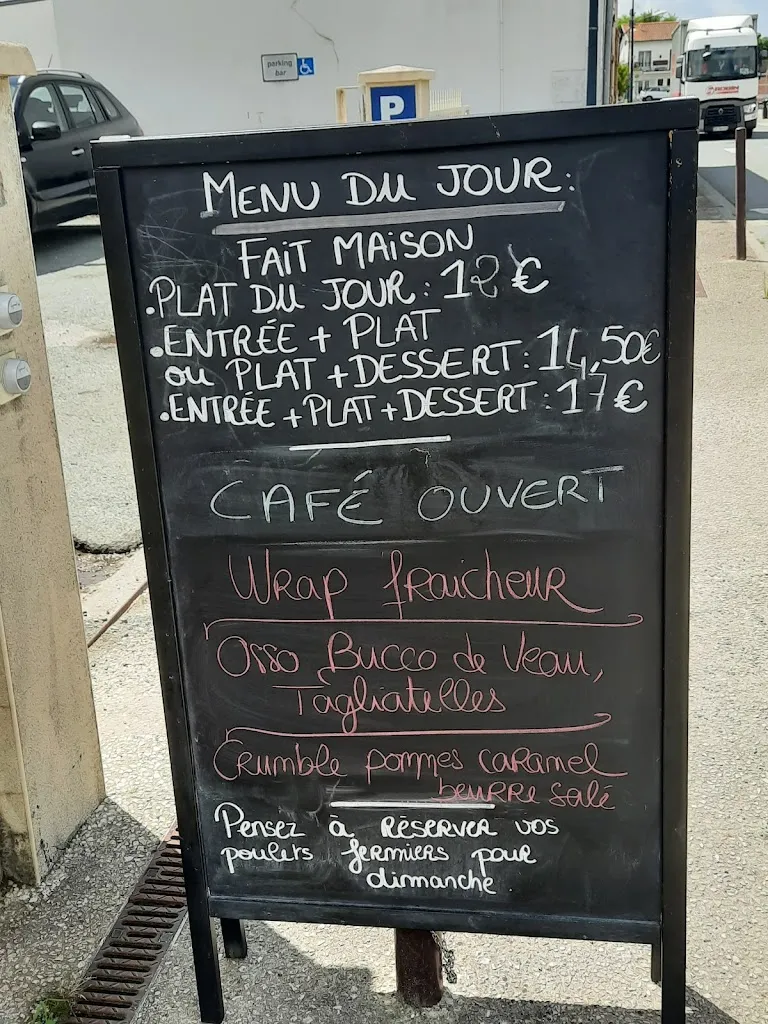 parking
bar
P
MENU DU JOUR:
FAIT MAISON
.PLAT DU JOUR: 12€
.ENTRÉE + PLAT
ou PLAT + DESSERT: 14,50€
.ENTRÉE + PLAT + DESSERT: 17€
CAFÉ OUVERT
Wrap fraicheur
Osso Bucco de Veau,
Tagliatelles
Crumble pommes caramel
beurre salé
Pensez à Réserver vos
poulets fermiers pour
dimanche